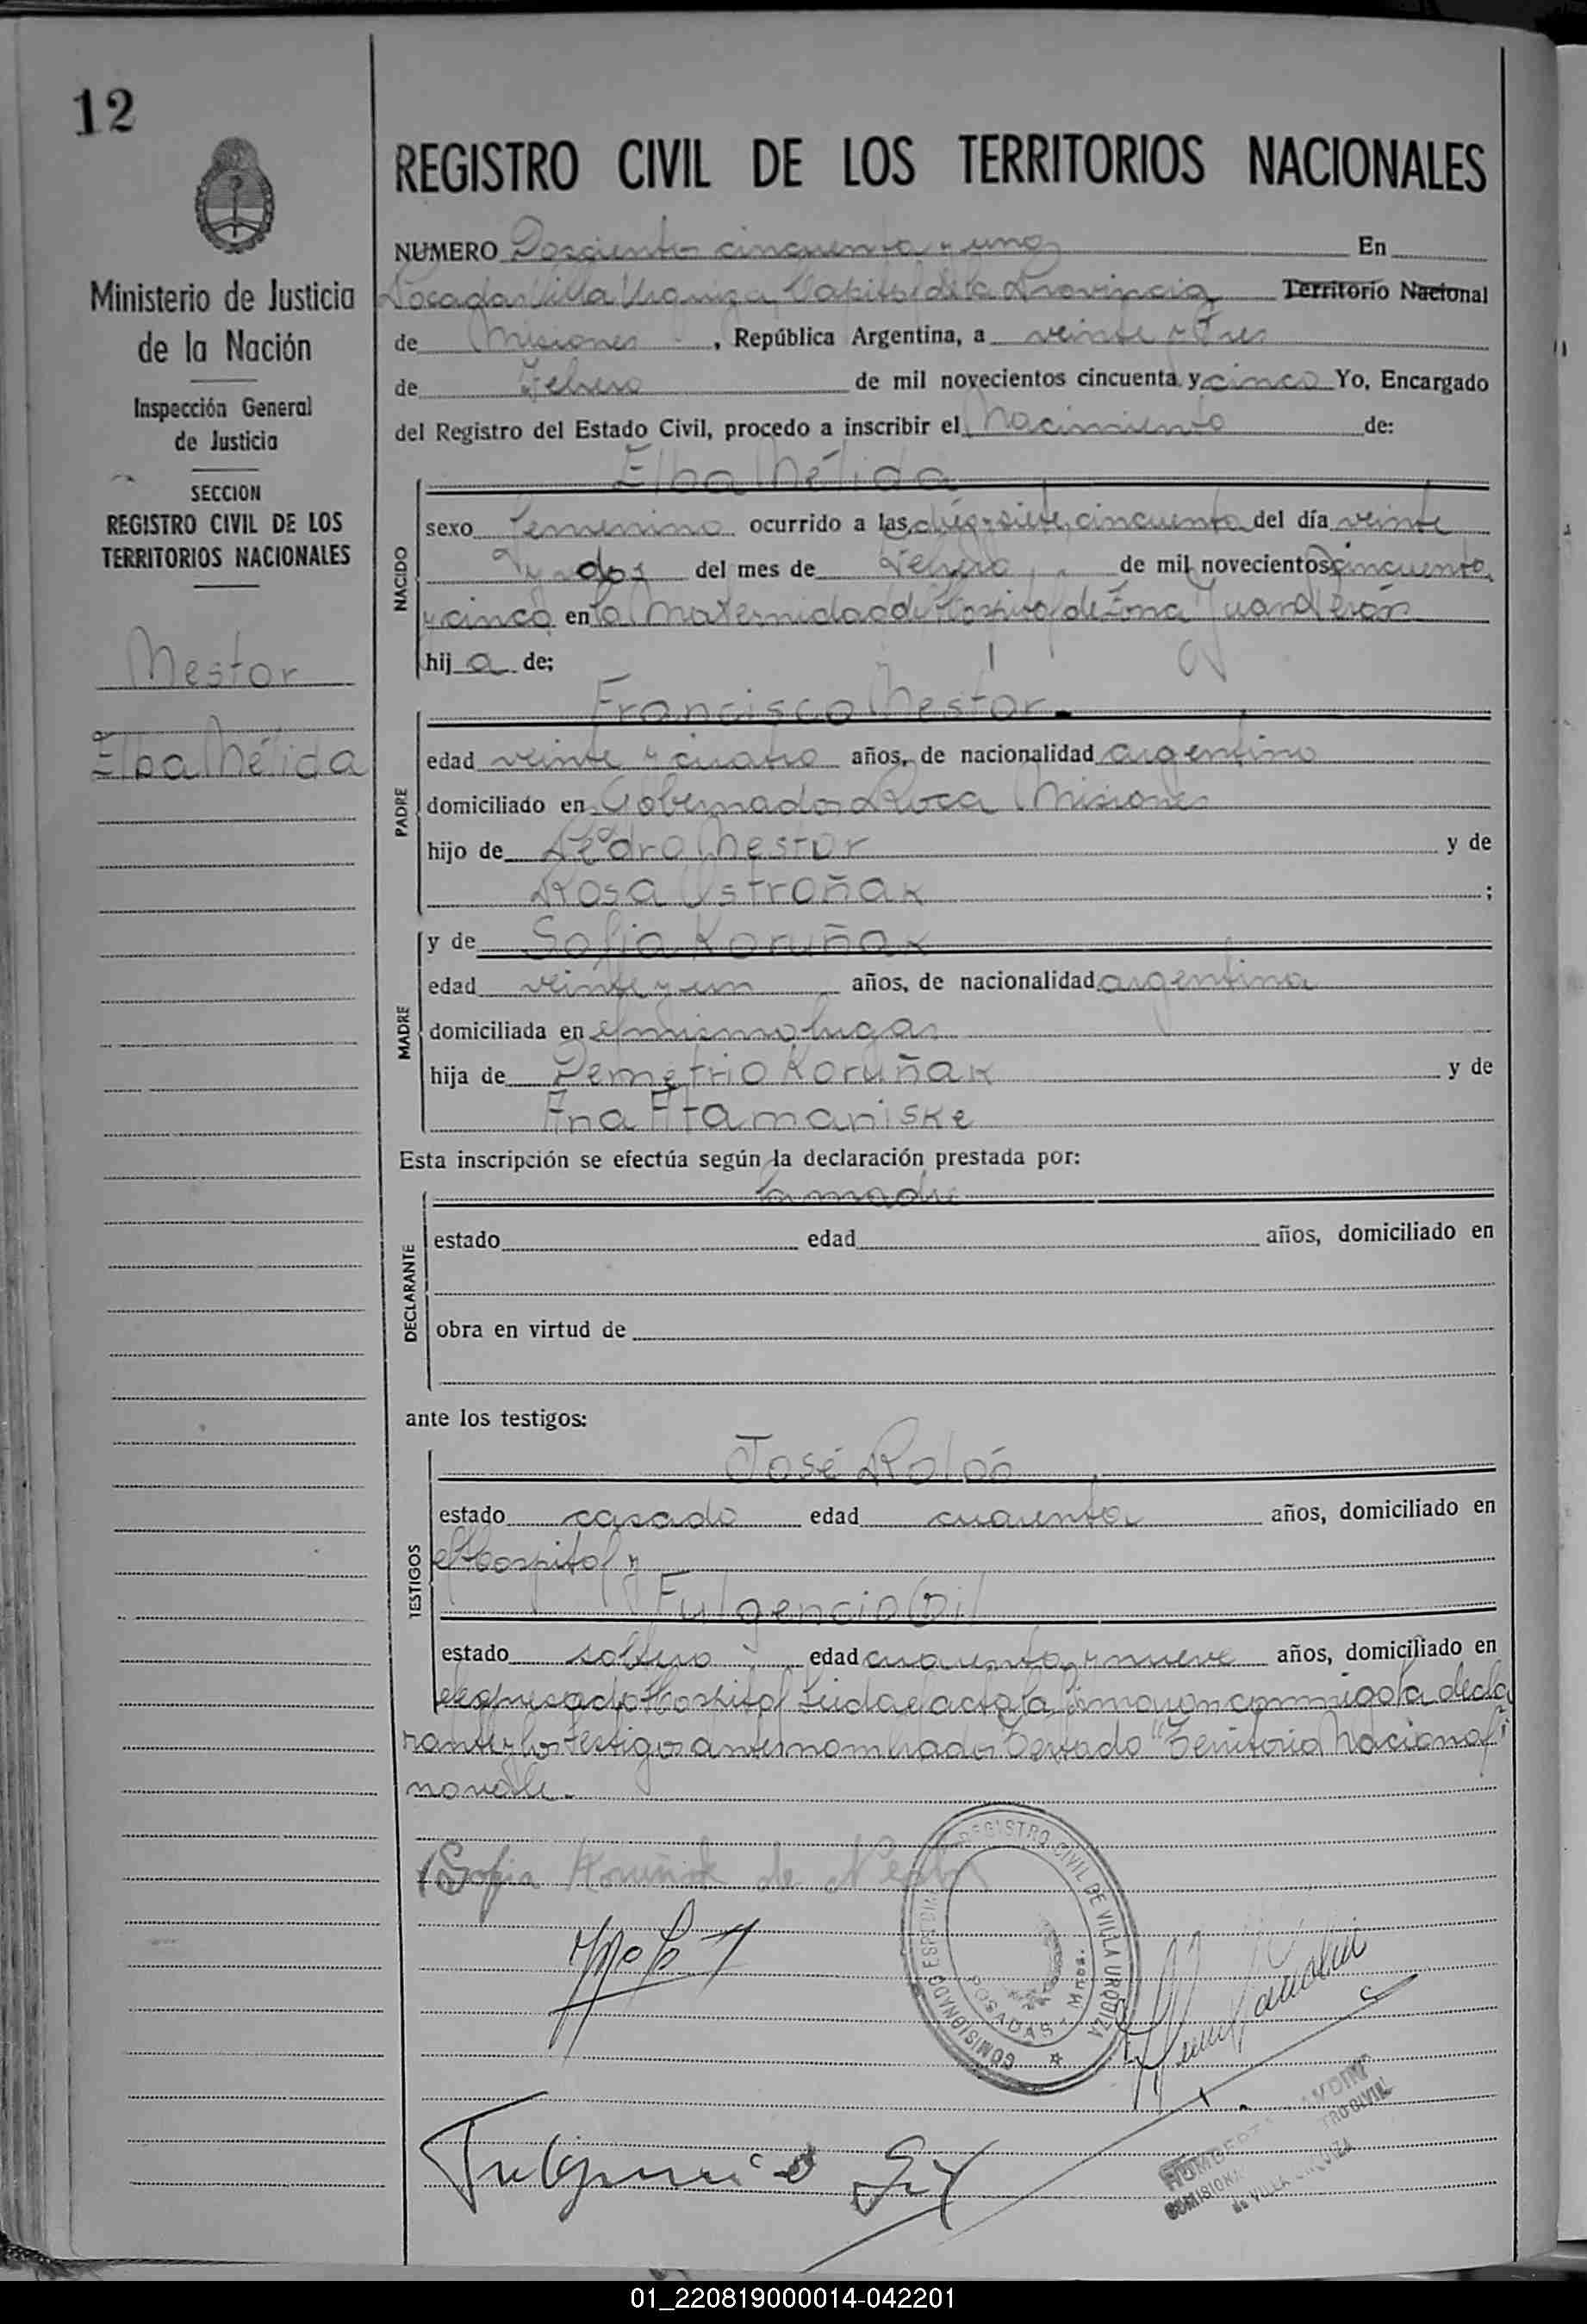 12
Ministerio de Justicia
de la Nación
Inspección General
de Justicia
SECCION
REGISTRO CIVIL DE LOS
TERRITORIOS NACIONALES
Nestor
Elba Nélida
REGISTRO CIVIL DE LOS TERRITORIOS NACIONALES
NUMERO Doscientos cincuenta y uno En
Posadas Villa Urquiza, Capital de la Provincia Territorio Nacional
de Misiones, República Argentina, a veinte y tres
de Febrero de mil novecientos cincuenta y cinco Yo, Encargado
del Registro del Estado Civil, procedo a inscribir el Nacimiento de:
NACIDO
Elba Nélida
sexo Femenino ocurrido a las diez y siete, cincuenta del día veinte
y dos del mes de Febrero de mil novecientos cincuenta
y cinco en la Maternidad del Hospital de Zona Juan Perón
hija de:
PADRE
Francisco Nestor
edad veinte y cuatro años, de nacionalidad argentino
domiciliado en Gobernador Roca Misiones
hijo de Pedro Nestor y de
Rosa Ostroñak ;
MADRE
y de Sofia Koruñak
edad veinte y un años, de nacionalidad argentina
domiciliada en el mismo lugar
hija de Demetrio Koruñak y de
Ana Atamaniske
Esta inscripción se efectúa según la declaración prestada por:
DECLARANTE
la madre
estado edad años, domiciliado en
obra en virtud de
ante los testigos:
TESTIGOS
José
estado casado edad cuarenta años, domiciliado en
el Hospital y
Fulgencio Gil
estado soltero edad cuarenta y nueve años, domiciliado en
el expresado Hospital Leida el acta la firmaron conmigo la decla
rante y los testigos antes nombrados Testado "Territorio Nacional"
no vale.-
Sofia Koruñak de Nestor
REGISTRO CIVIL DE VILLA URQUIZA
COMISIONADO ESP.
POSADAS - Mnes.
Fulgencio Gil
de VILLA URQUIZA
01_220819000014-042201